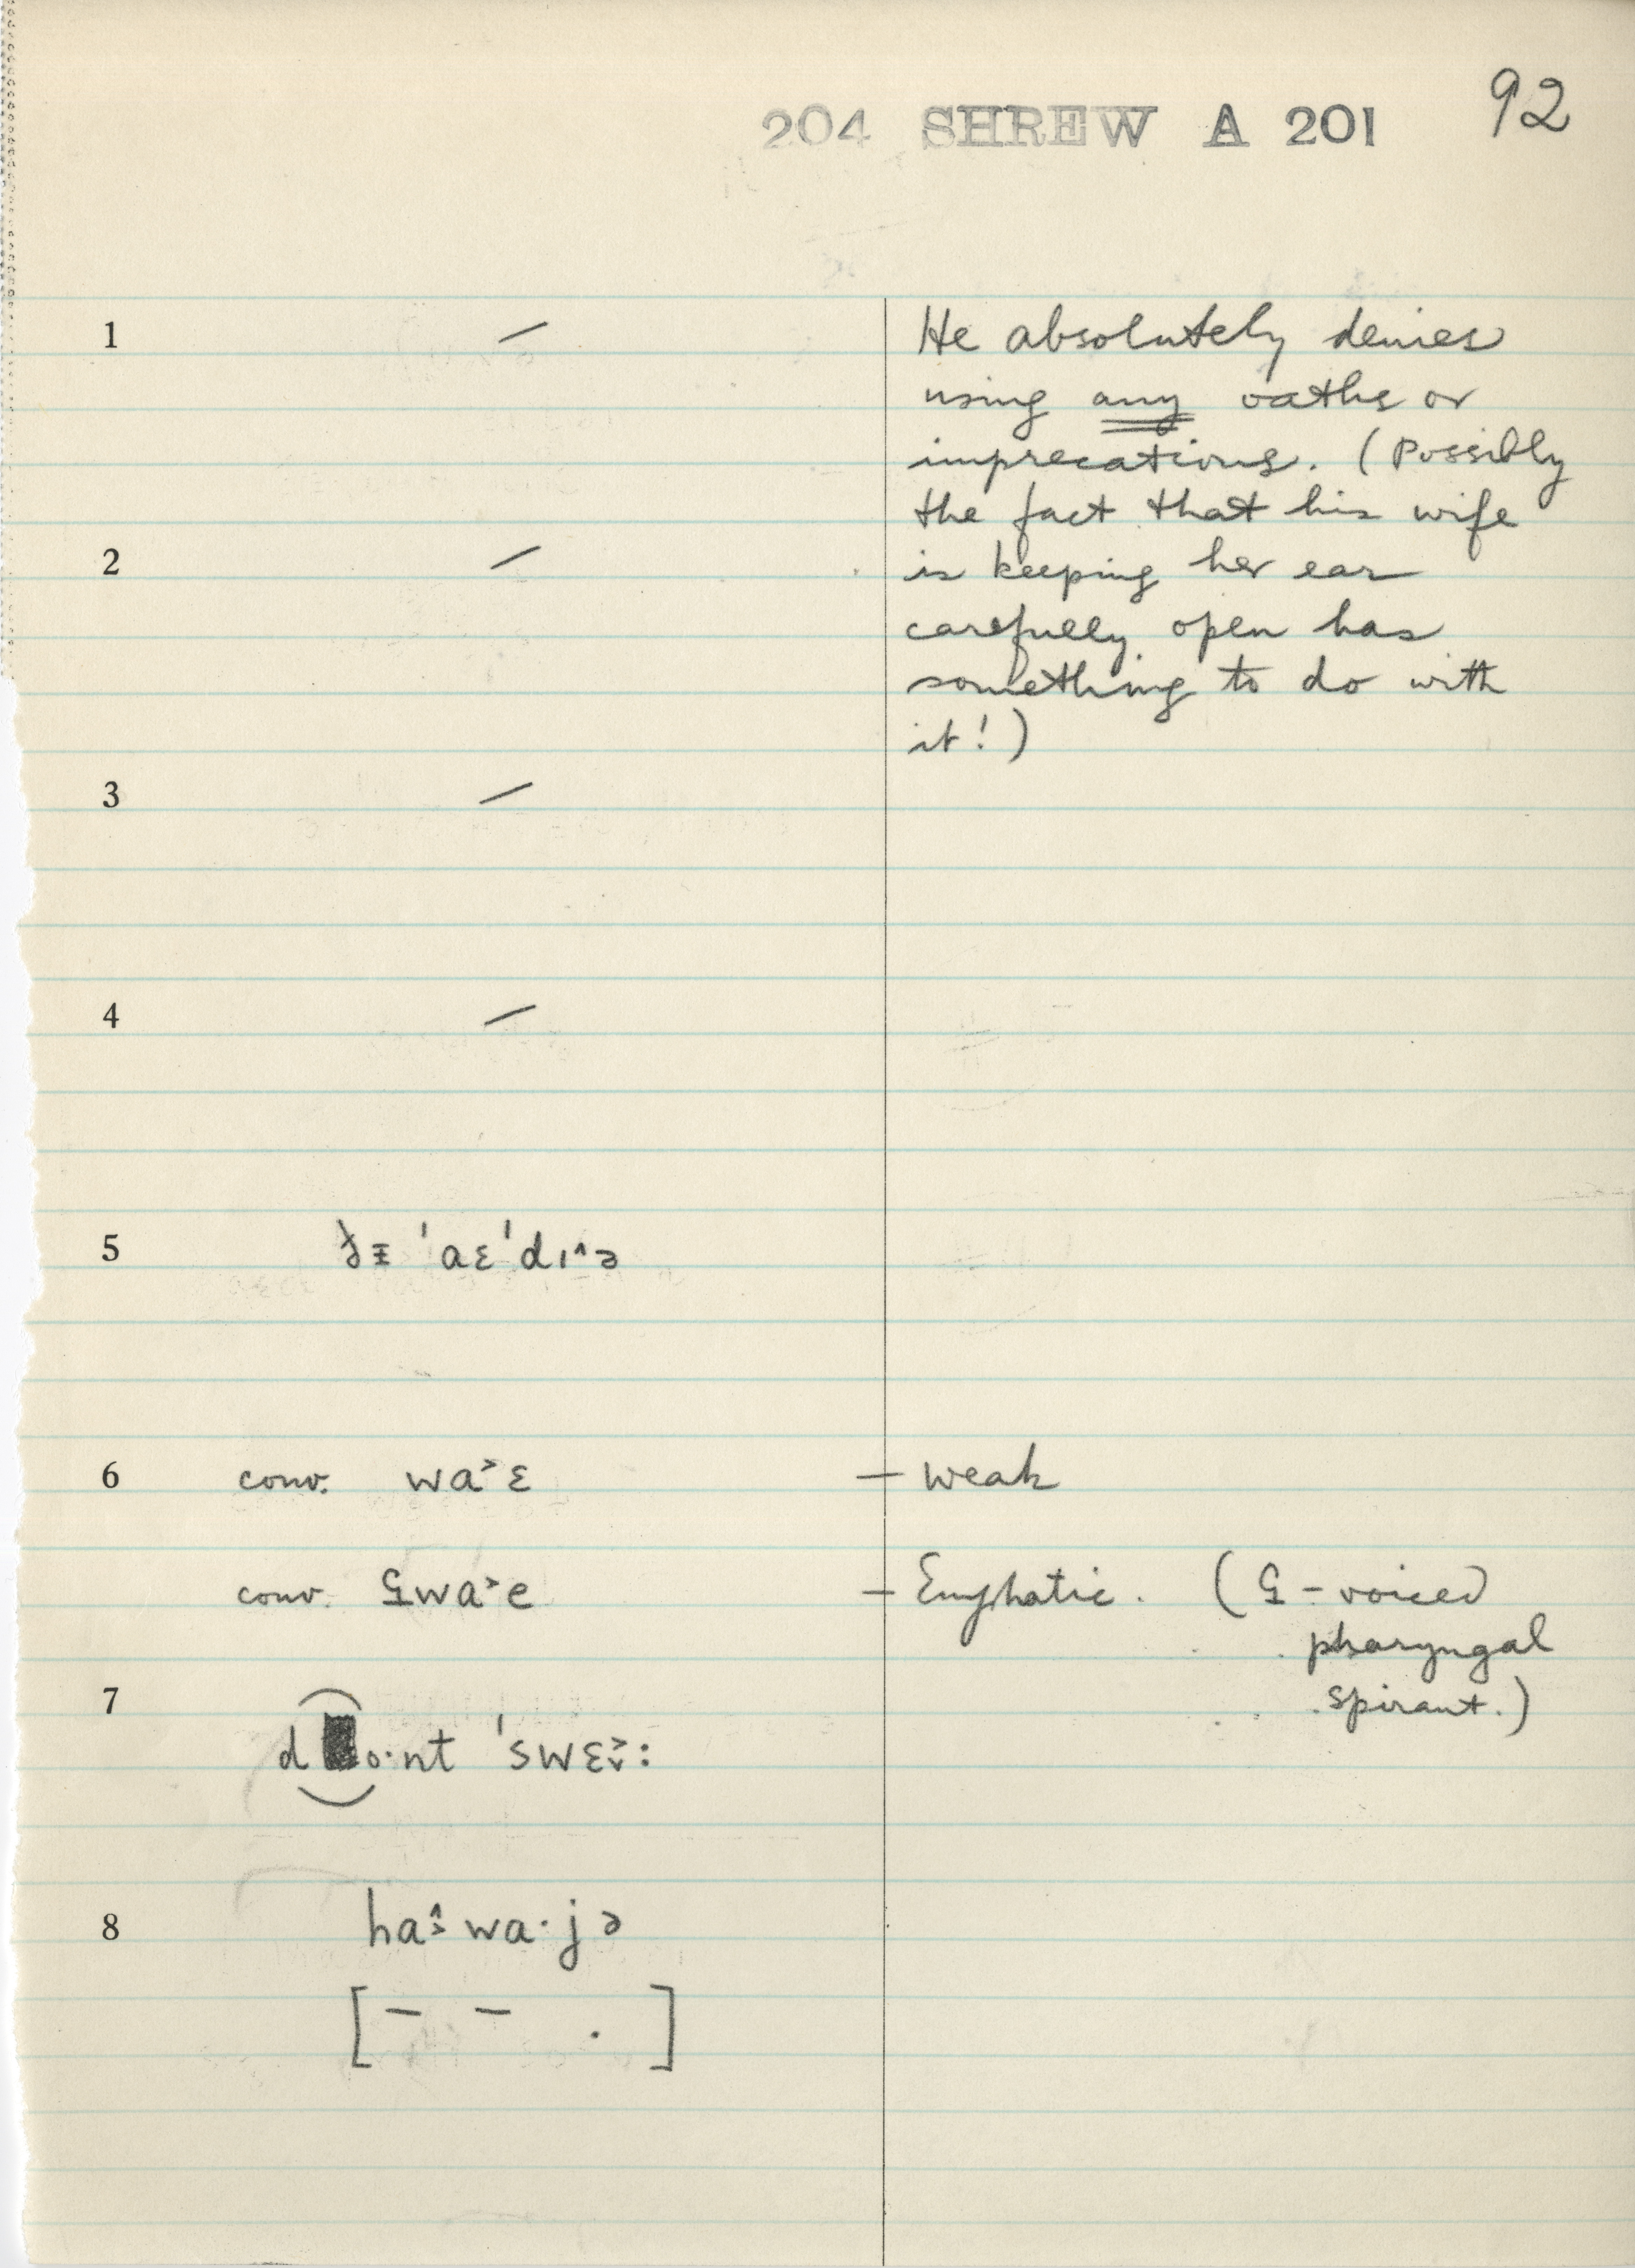 204 SHREW A 201 92
1 – He absolutely denies
using any oaths or
imprecations. (Possibly
the fact that his wife
2 – is keeping her ear
carefully open has
something to do with
it!)
3 –
4 –
5 'aɛ'dɪ^ə
6 conv. wa˃ɛ – weak
conv. ʕ̱wa˃e – Emphatic. (ʕ̱ – voiced
pharyngal
spirant.)
7
d o·nt 'swɛ˔:
8 ha wa·jə
[– – .]